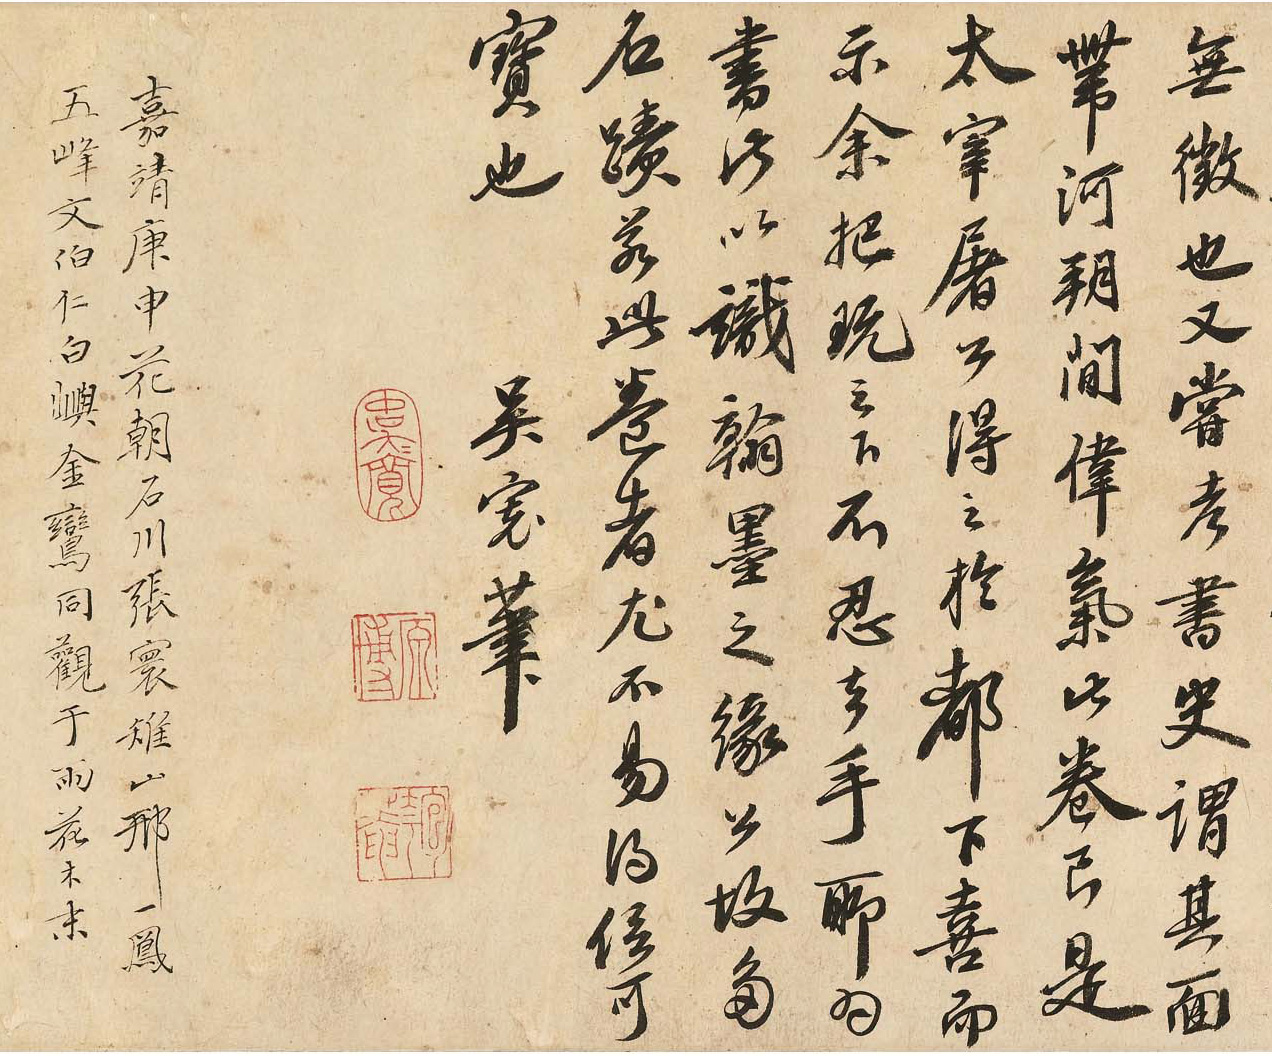 無徵也又嘗考書史謂其面
帶河朔間偉氣此卷已是
太宰屠公得之於都下喜而
示余把玩之下不忍去手聊為
書此以識翰墨之緣公故多
名蹟若此卷者尤不易得信可
寶也
吳寬筆
吳寬
原博
嘉靖庚申花朝石川張寰雉山邢一鳳
五峰文伯仁白嶼金鸞同觀于雨花木末